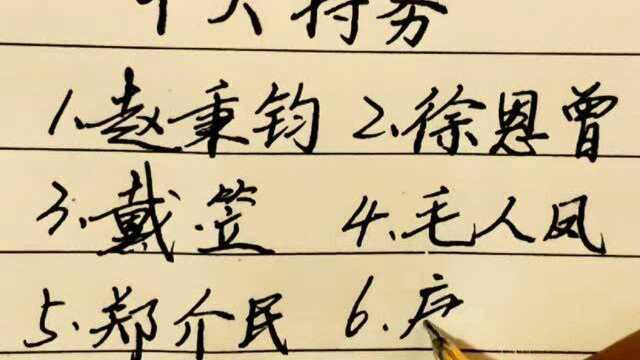 十大特务
1.赵秉钧 2.徐恩曾
3.戴笠 4.毛人凤
5.郑介民 6.